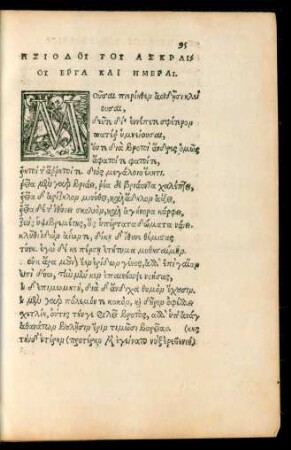 95
ΗΣΙΟΔΟΥ ΤΟΥ ΑΣΚΡΑΙ
ΟΥ ΕΡΓΑ ΚΑΙ ΗΜΕΡΑΙ.
Μοῦσαι πιερίηθεν ἀοιδῇσι κλεί
ουσαι,
δεῦτε δὴ ἐννέπετε σφέτερον
πατέρ ὑμνείουσαι,
ὅντε διὰ βροτοὶ ἄνδρες ὁμῶς
ἄφατοίτε φατοίτε,
ῥητοί τ' ἄρρητοί τε διὸς μεγάλοιο ἕκητι.
ῥεῖα μὲν γὰρ βριάει, ῥέα δὲ βριάοντα χαλέπτει,
ῥεῖα δ' ἀρίζηλον μινύθει, καὶ ἄδηλον ἀέξει,
ῥεῖα δέ τ' ἰθύνει σκολιὸν, καὶ ἀγήνορα κάρφει,
ζεὺς ὑψιβρεμέτης, ὃς ὑπέρτατα δώματα ναίει.
κλῦθι ἰδὼν ἀΐων τε, δίκῃ δ' ἴθυνε θέμιστας
τύνη. ἐγὼ δέ κε πέρσῃ ἐτήτυμα μυθησαίμην.
οὐκ ἄρα μοῦνον ἔην ἐρίδων γένος, ἀλλ' ἐπὶ γαῖαν
εἰσὶ δύω, τὴν μέν κεν ἐπαινέσειε νοήσας,
ἡ δ' ἐπιμωμητὴ, διὰ δ' ἄνδιχα θυμὸν ἔχουσιν.
ἡ μὲν γὰρ πόλεμόν τε κακὸν, καὶ δῆριν ὀφέλλει
σχετλίη, οὔτις τήνγε φιλεῖ βροτὸς, ἀλλ' ὑπ' ἀνάγκης
ἀθανάτων βουλῇσιν ἔριν τιμῶσι βαρεῖαν.
τὴν δ' ἑτέρην προτέρην μὲν ἐγείνατο νὺξ ἐρεβεννὴ